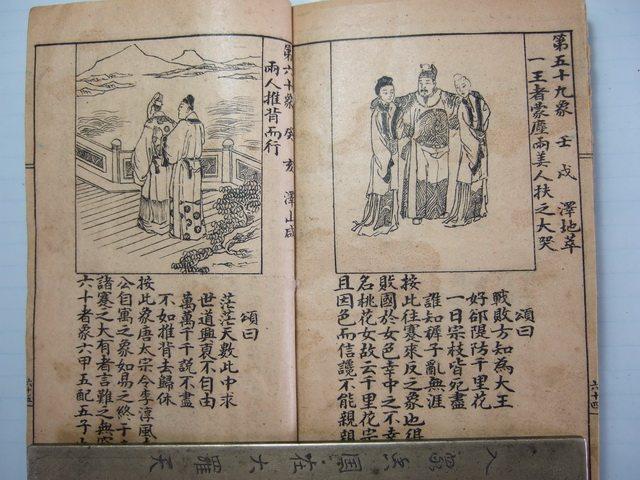 第五十九象 壬戌 澤地萃
一王者蒙塵兩美人扶之大哭
頌曰
戰敗方知為大王
好郤隄防千里花
一日宗枝皆死盡
誰知褲子亂無涯
按此往蹇來反之象也
敗國於女色幸中之不幸
名桃花女故云千里花宗
且因色而信讒不能親親
六十四
第六十象 癸亥 澤山咸
兩人推背而行
頌曰
茫茫天數此中求
世道興衰不自由
萬萬千千說不盡
不如推背去歸休
按此象唐太宗令李淳風
公自寓之象如易之終于
諸蹇之大有者言難之無窮
六十者象六甲五配五子
六十五
入駕兵圍在大羅天